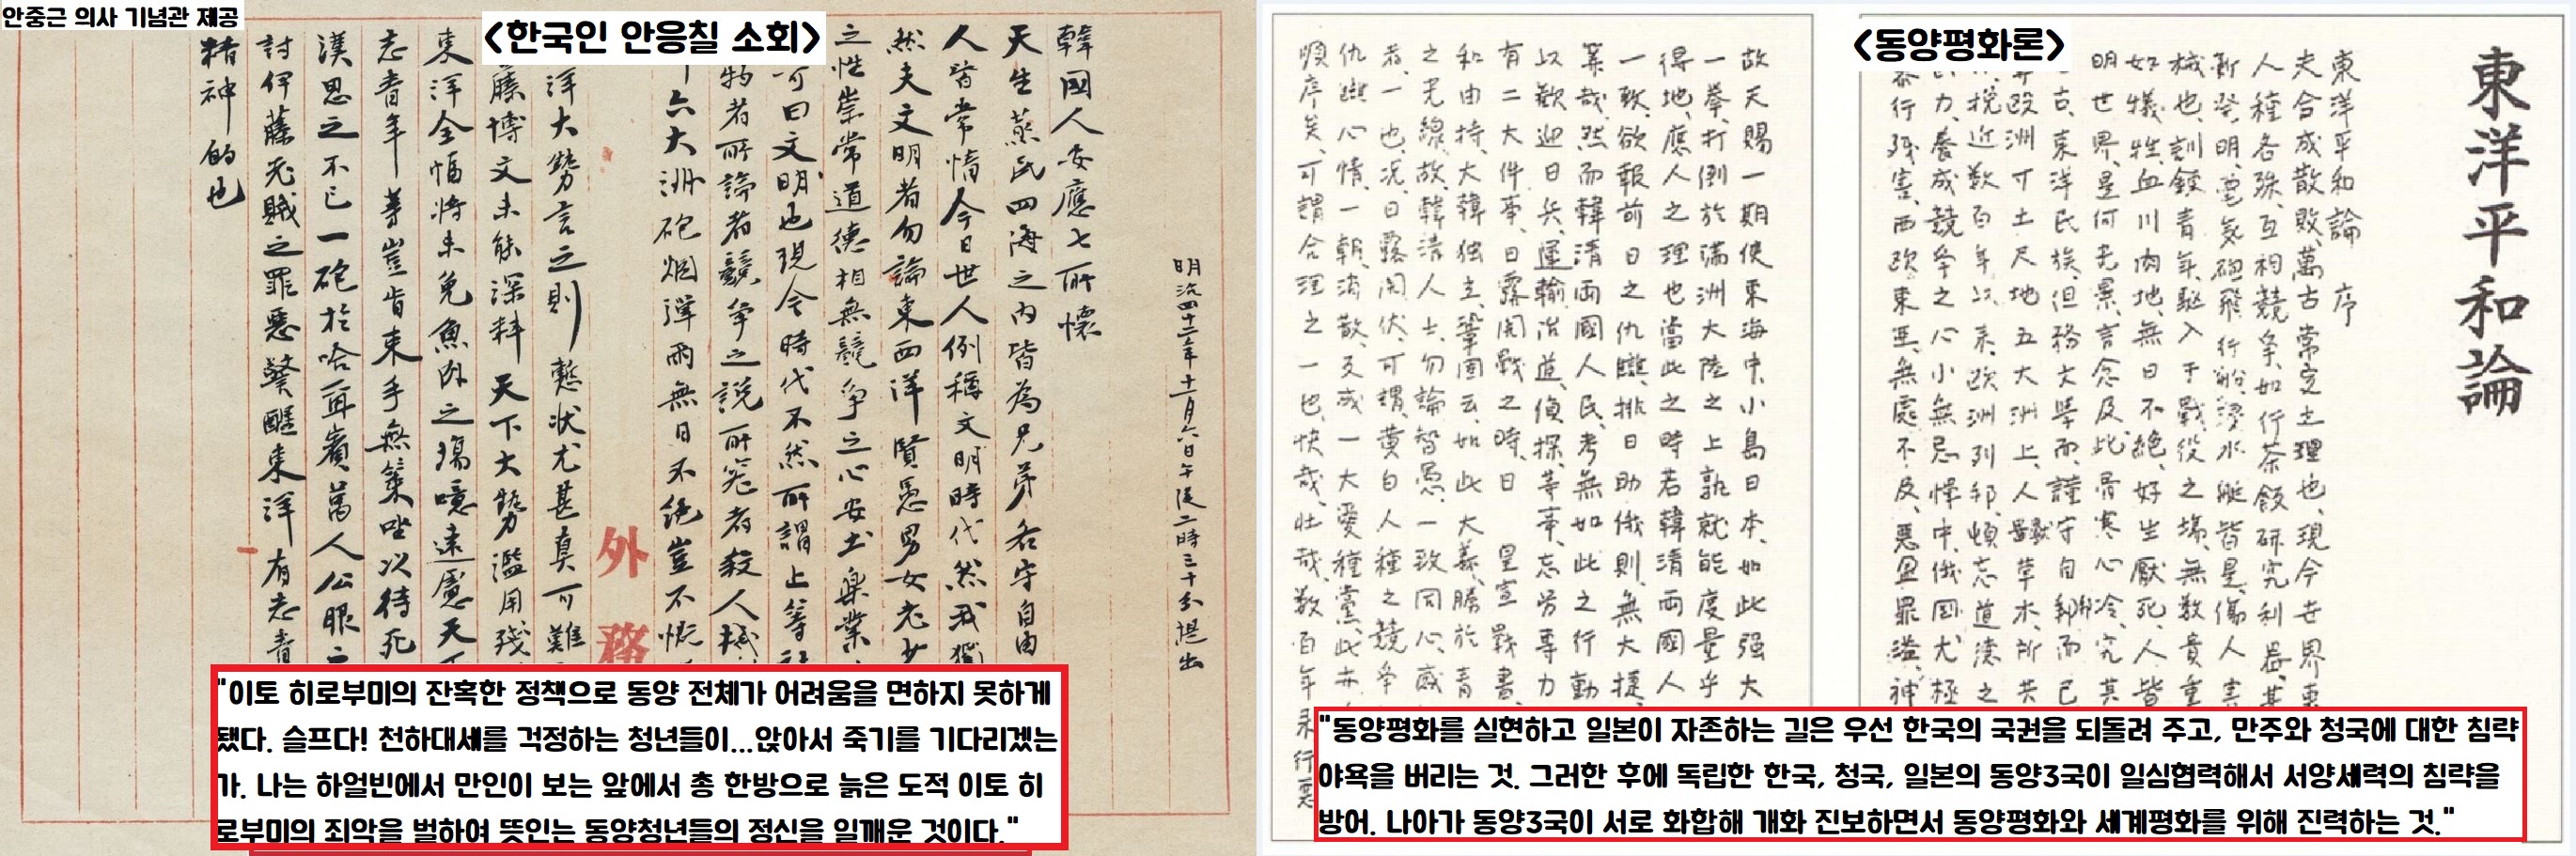 안중근 의사 기념관 제공
<한국인 안응칠 소회>
明治四十二年十一月六日午後二時三十分提出
韓國人安應七所懷
天生蒸民四海之內皆為兄弟各守自由
人皆常情今日世人例稱文明時代然我獨
然夫文明者勿論東西洋賢愚男女老少
之性崇常道德相無競爭之心安土樂業
可曰文明也現今時代不然所謂上等社
物者所論者競爭之說所究者殺人機
六大洲砲烟彈雨無日不絕豈不慨
洋大勢言之則慙状尤甚真可難
藤博文未能深料天下大勢濫用殘
東洋全幅將未免魚肉之塲噫遠慮天
志青年等豈肯束手無策坐以待死
漢思之不已一砲於哈爾賓萬人公眼之
討伊藤老賊之罪惡警醒東洋有志青
精神的也
外務
"이토 히로부미의 잔혹한 정책으로 동양 전체가 어려움을 면하지 못하게
됐다. 슬프다! 천하대세를 걱정하는 청년들이...앉아서 죽기를 기다리겠는
가. 나는 하얼빈에서 만인이 보는 앞에서 총 한방으로 늙은 도적 이토 히
로부미의 죄악을 벌하여 뜻있는 동양청년들의 정신을 일깨운 것이다."
<동양평화론>
東洋平和論
東洋平和論 序
夫合成散敗、萬古常定之理也、現今世界東
人種各殊、互相競爭、如行茶飯、研究利器、甚
新發明電気砲飛行船浸水艇皆是傷人害
械也、訓鍊青年、駆入于戰役之塲、無数貴重
如犠牲、血川肉地、無日不絶、好生厭死、人皆
明世界、是何光景、言念及此、骨寒心冷、究其
古、東洋民族、但務文學而、謹守自邦而已
歐洲寸土尺地、五大洲上、人獸草木、所共
挽近數百年以来、欧洲列邦、頓忘道徳之
力、養成競爭之心、小無忌憚、中、俄国尤極
行殘害、西欧東亜、無處不及、悪盈罪溢、神
故天賜一期、使東海中、小島日本、如此强大
一擧、打倒於満洲大陸之上、孰就能度量乎
得地、應人之理也、當此之時、若韓清両國人
一致、欲報前日之仇讎、排日助俄則、無大捷、
筭哉、然而韓清両國人民、考無如此之行動
以歡迎日兵、運輸、治道、偵探、等事、忘労専力
有二大件事、日露開戰之時、日 皇宣戰書、
和由持、大韓独立、鞏固云、如此大義、勝於青
之光線、故、韓清人士、勿論智愚、一致同心、感
者、一也、况、日露開伏、可謂、黄白人種之競争
仇讎心情、一朝消散、反成一大愛種黨、此亦
順序矣、可謂合理之一也、快哉、壮哉、數百年来行悪
"동양평화를 실현하고 일본이 자존하는 길은 우선 한국의 국권을 되돌려 주고, 만주와 청국에 대한 침략
야욕을 버리는 것. 그러한 후에 독립한 한국, 청국, 일본의 동양3국이 일심협력해서 서양세력의 침략을
방어. 나아가 동양3국이 서로 화합해 개화 진보하면서 동양평화와 세계평화를 위해 진력하는 것."